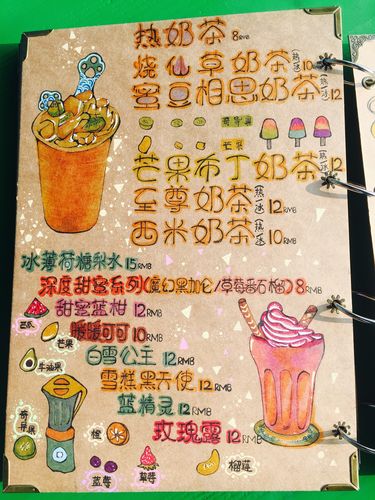 热奶茶 8RMB
烧仙草奶茶(热/冰)10RMB
蜜豆相思奶茶(热/冰)12
芒果
芒果布丁奶茶(热/冰)12RMB
至尊奶茶(热/冰)12RMB
西米奶茶(热/冰)10RMB
冰薄荷糖梨水 15RMB
深度甜蜜系列(魔幻黑加仑/草莓番石榴)8RMB
甜蜜蓝柑 12RMB
暖暖可可 10RMB
白雪公主 12RMB
雪糕黑天使 12RMB
蓝精灵 12RMB
玫瑰露 12RMB
西瓜
芒果
牛油果
奇异果
橙
蓝莓
草莓
榴莲